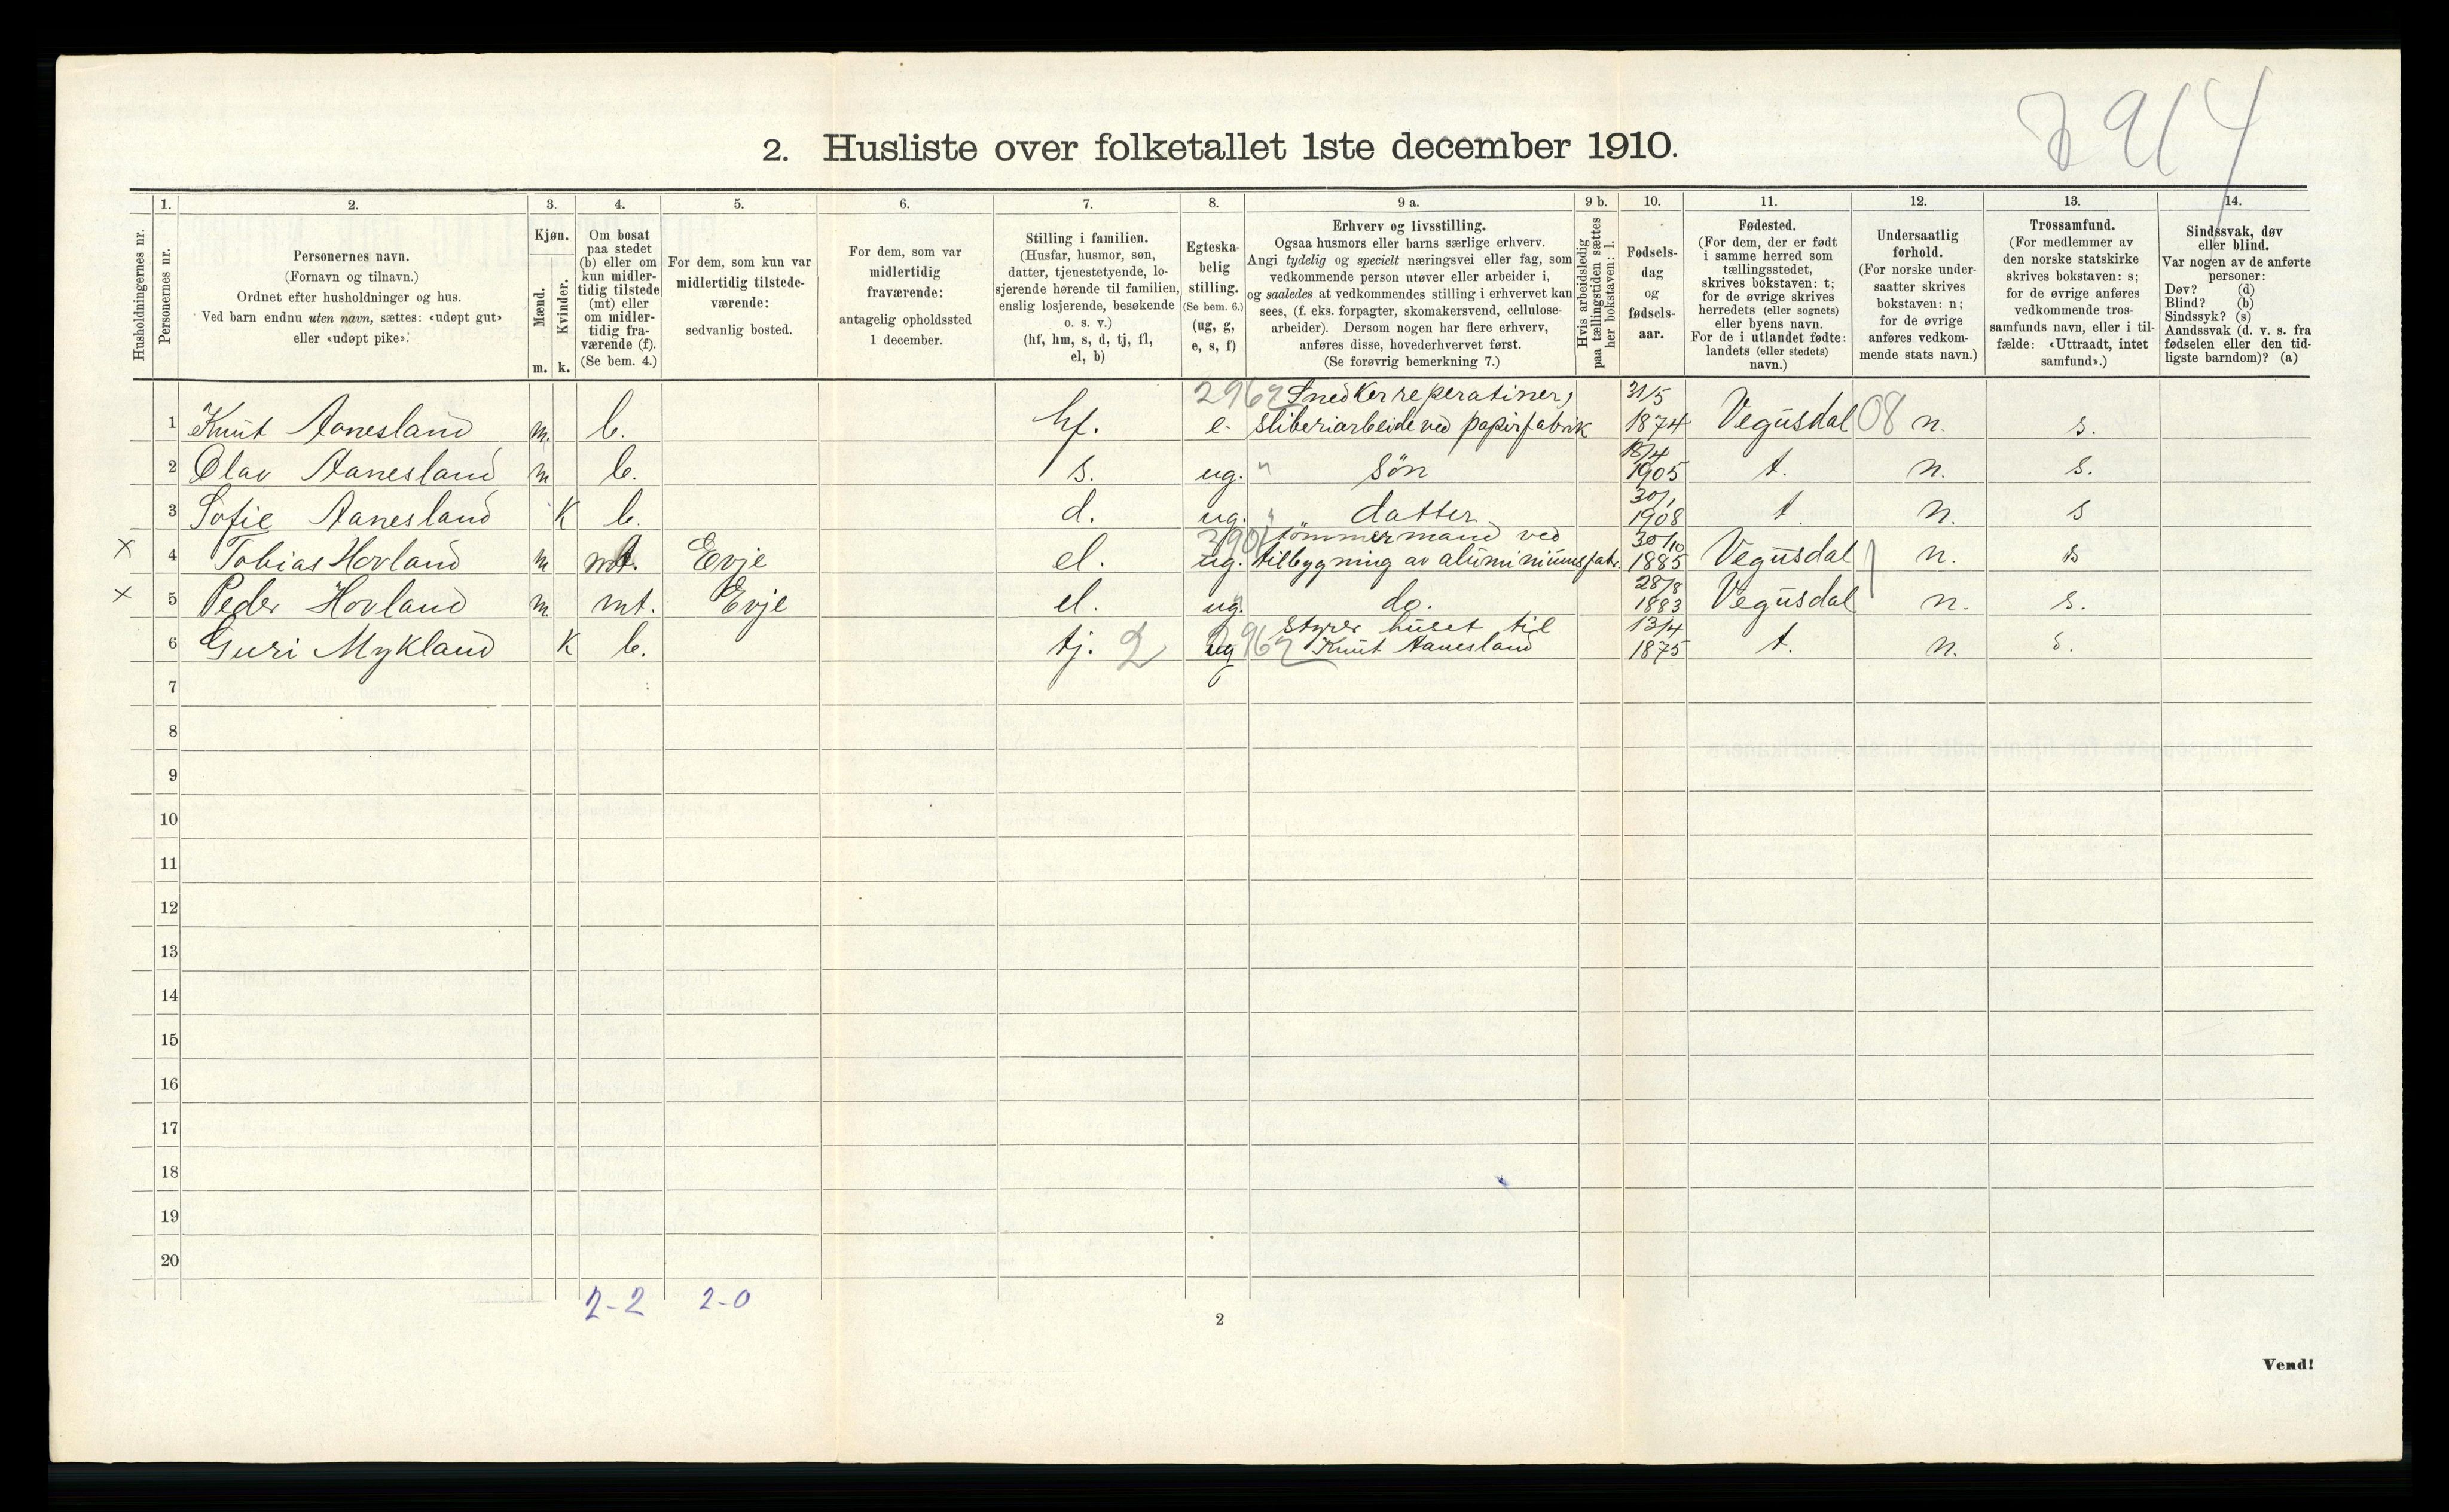 8914
2. Husliste over folketallet 1ste december 1910.
Husholdningernes nr.
1.
Personernes nr.
2.
Personernes navn.
(Fornavn og tilnavn.)
Ordnet efter husholdninger og hus.
Ved barn endnu uten navn, sættes: «udøpt gut»
eller «udøpt pike».
3.
Kjøn.
Mænd.
Kvinder.
m. k.
4.
Om bosat
paa stedet
(b) eller om
kun midler-
tidig tilstede
(mt) eller
om midler-
tidig fra-
værende (f).
(Se bem. 4.)
5.
For dem, som kun var
midlertidig tilstede-
værende:
sedvanlig bosted.
6.
For dem, som var
midlertidig
fraværende:
antagelig opholdssted
1 december.
7.
Stilling i familien.
(Husfar, husmor, søn,
datter, tjenestetyende, lo-
sjerende hørende til familien,
enslig losjerende, besøkende
o. s. v.)
(hf, hm, s, d, tj, fl,
el, b)
8.
Egteska-
belig
stilling.
(Se bem. 6.)
(ug, g,
e, s, f)
9 a.
Erhverv og livsstilling.
Ogsaa husmors eller barns særlige erhverv.
Angi tydelig og specielt næringsvei eller fag, som
vedkommende person utøver eller arbeider i,
og saaledes at vedkommendes stilling i erhvervet kan
sees, (f. eks. forpagter, skomakersvend, cellulose-
arbeider). Dersom nogen har flere erhverv,
anføres disse, hovederhvervet først.
(Se forøvrig bemerkning 7.)
9 b.
Hvis arbeidsledig
paa tællingstiden sættes
her bokstaven: l.
10.
Fødsels-
dag
og
fødsels-
aar.
11.
Fødested.
(For dem, der er født
i samme herred som
tællingsstedet,
skrives bokstaven: t;
for de øvrige skrives
herredets (eller sognets)
eller byens navn.
For de i utlandet fødte:
landets (eller stedets)
navn.)
12.
Undersaatlig
forhold.
(For norske under-
saatter skrives
bokstaven: n;
for de øvrige
anføres vedkom-
mende stats navn.)
13.
Trossamfund.
(For medlemmer av
den norske statskirke
skrives bokstaven: s;
for de øvrige anføres
vedkommende tros-
samfunds navn, eller i til-
fælde: «Uttraadt, intet
samfund».)
14.
Sindssvak, døv
eller blind.
Var nogen av de anførte
personer:
Døv? (d)
Blind? (b)
Sindssyk? (s)
Aandssvak (d. v. s. fra
fødselen eller den tid-
ligste barndom)? (a)
2962 Snedkerreperatiner, 31/5
1 Knut Aanesland m. b. hf. e. sliberiarbeide ved papirfabrik 1874 Vegusdal 08 n. s.
18/4
2 Olav Aanesland m b. s. ug. " søn 1905 t. n. s.
30/1
3 Sofie Aanesland K b. d. ug. " datter 1908 t n. s
3901 tømmermand ved 30/10
x 4 Tobias Hovland m mt. Evje el. ug. tilbygning av aluminiumsfabr. 1885 Vegusdal n. s
28/8
x 5 Peder Hovland m. mt. Evje el. ug. do. 1883 Vegusdal n. s.
styrer huset til 13/4
6 Guri Mykland K b. tj. 2 ug 2962 Knut Aanesland 1875 t. n. s.
7
8
9
10
11
12
13
14
15
16
17
18
19
20
2-2 2-0
2
Vend!